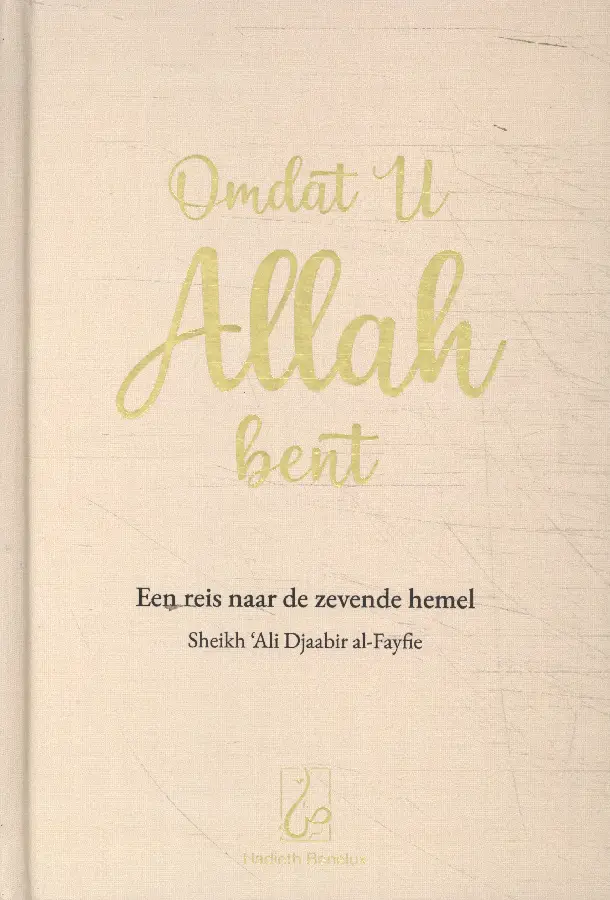 Omdat U
Allah
bent
Een reis naar de zevende hemel
Sheikh ‘Ali Djaabir al-Fayfie
Hadieth Benelux